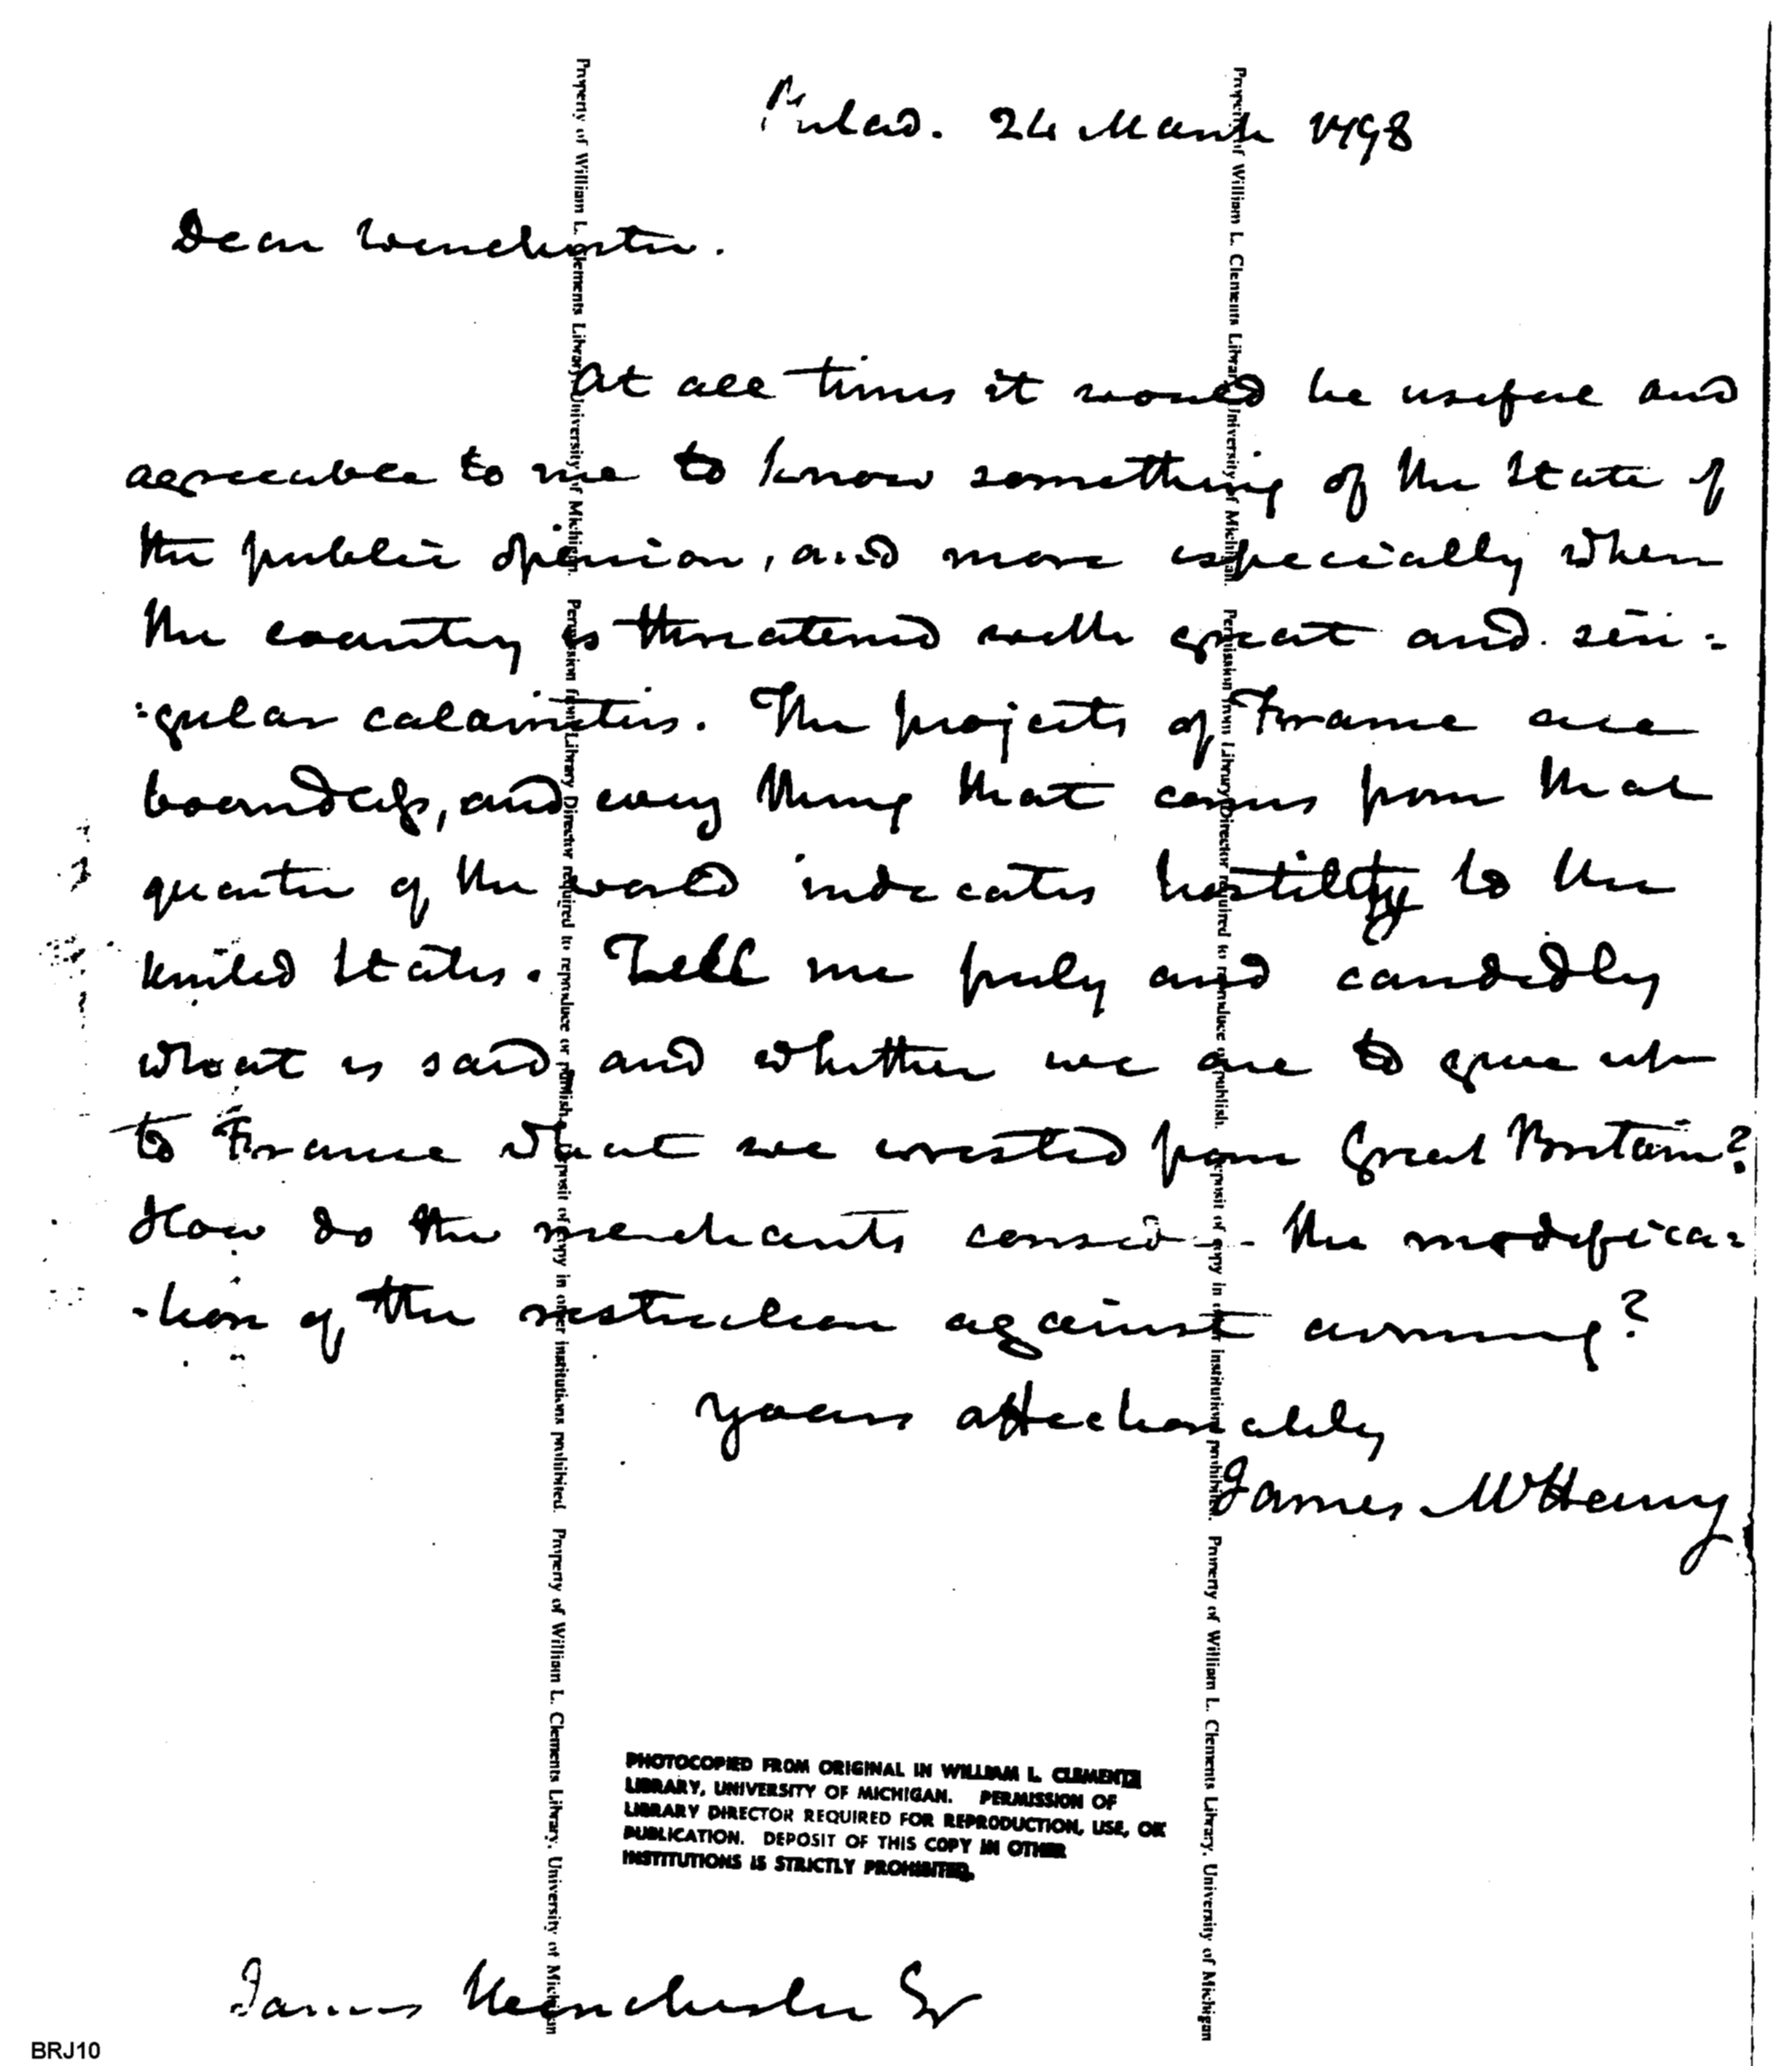 Philad. 24 March 1798
Dear Winchester.
At all times it would be useful and
agreeable to me to know something of the State of
the public opinion, and more especially when
the country is threatened with great and sin=
=gular calamities. The projects of France are
boundless, and every thing that comes from that
quarter of the world indicates hostility to the
United States. Tell me freely and candidly
what is said and whether we are to give up
to France what we wrested from Great Britain?
How do the merchants consid the modifica=
-tion of the restriction against arming?
Yours affectionately
James McHenry
PHOTOCOPIED FROM ORIGINAL IN WILLIAM L. CLEMENTS
LIBRARY, UNIVERSITY OF MICHIGAN. PERMISSION OF
LIBRARY DIRECTOR REQUIRED FOR REPRODUCTION, USE, OR
PUBLICATION. DEPOSIT OF THIS COPY IN OTHER
INSTITUTIONS IS STRICTLY PROHIBITED.
James Winchester Er
BRJ10
Property of William L. Clements Library, University of Michigan. Permission from Library Director required to reproduce or publish. Deposit of copy in other institutions prohibited. Property of William L. Clements Library, University of Michigan
Property of William L. Clements Library, University of Michigan. Permission from Library Director required to reproduce or publish. Deposit of copy in other institutions prohibited. Property of William L. Clements Library, University of Michigan